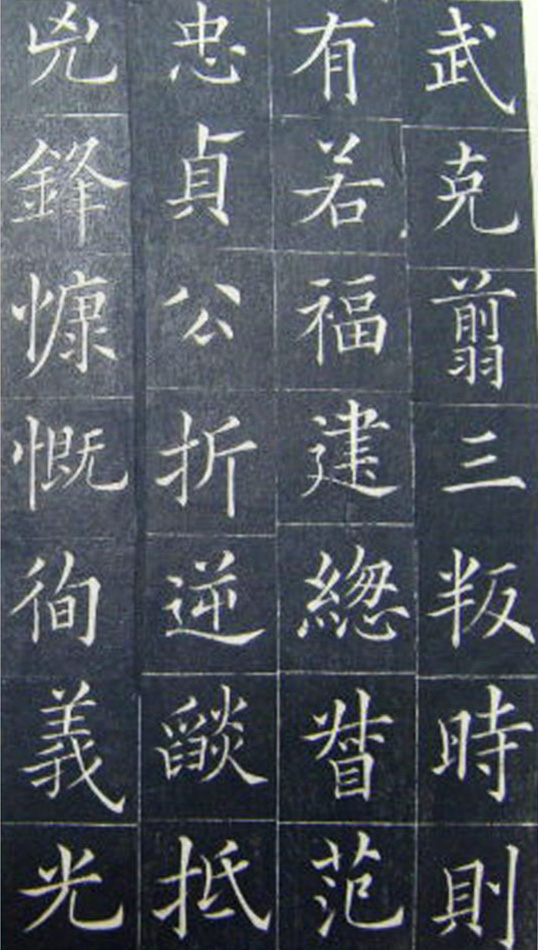 武克翦三叛時則
有若福建緫督范
忠貞公折逆燄抵
兇鋒慷慨徇義光